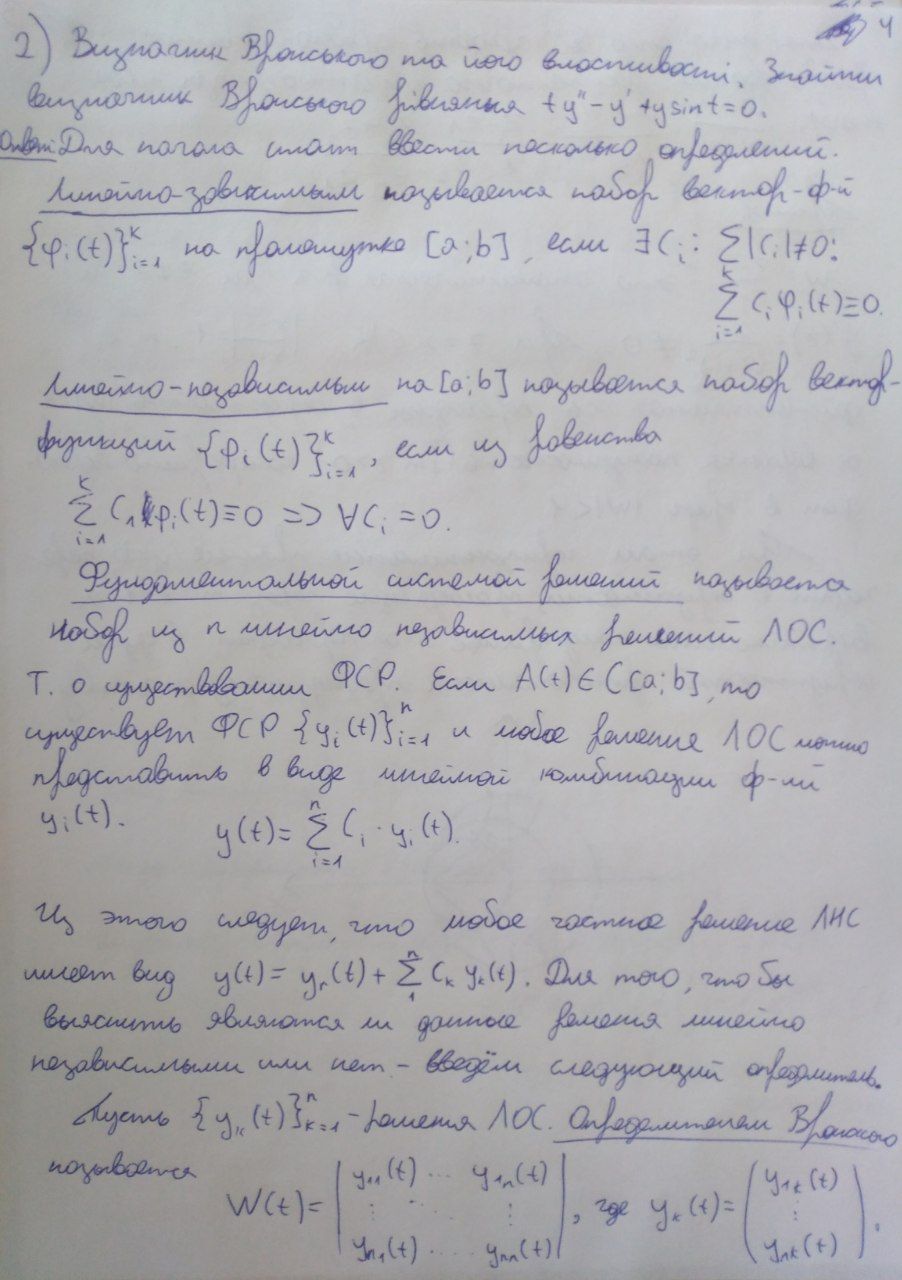 4
2) Визначник Вронського та його властивості. Знайти
визначник Вронського рівняння ty'' - y' + y sin t = 0.
Ответ: Для начала стоит ввести несколько определений.
Линейно-зависимым называется набор вектор-ф-й
{φᵢ(t)}ᵏᵢ₌₁ на промежутке [a;b], если ∃Cᵢ: Σ|Cᵢ|≠0:
Σᵏᵢ₌₁ Cᵢφᵢ(t)≡0.
Линейно-независимым на [a;b] называется набор вектор-
функций {φᵢ(t)}ᵏᵢ₌₁, если из равенства
Σᵏᵢ₌₁ C₁φᵢ(t)≡0 => ∀Cᵢ=0.
Фундаментальной системой решений называется
набор из n линейно независимых решений ЛОС.
Т. о существовании ФСР. Если A(t)∈C[a;b], то
существует ФСР {yᵢ(t)}ⁿᵢ₌₁ и любое решение ЛОС можно
представить в виде линейной комбинации ф-ий
yᵢ(t). y(t)= Σⁿᵢ₌₁ Cᵢ · yᵢ(t).
Из этого следует, что любое частное решение ЛНС
имеет вид y(t)= yₙ(t)+ Σⁿ₁ Cₖ yₖ(t). Для того, что бы
выяснить являются ли данные решения линейно
независимыми или нет - введём следующий определитель.
Пусть {yₖ(t)}ⁿₖ₌₁ - решения ЛОС. Определителем Вронского
называется
W(t)= | y₁₁(t) ... y₁ₙ(t) ⋮ ⋱ ⋮ yₙ₁(t) .... yₙₙ(t) |, где yₖ(t)= ( y₁ₖ(t) ⋮ yₙₖ(t) ).